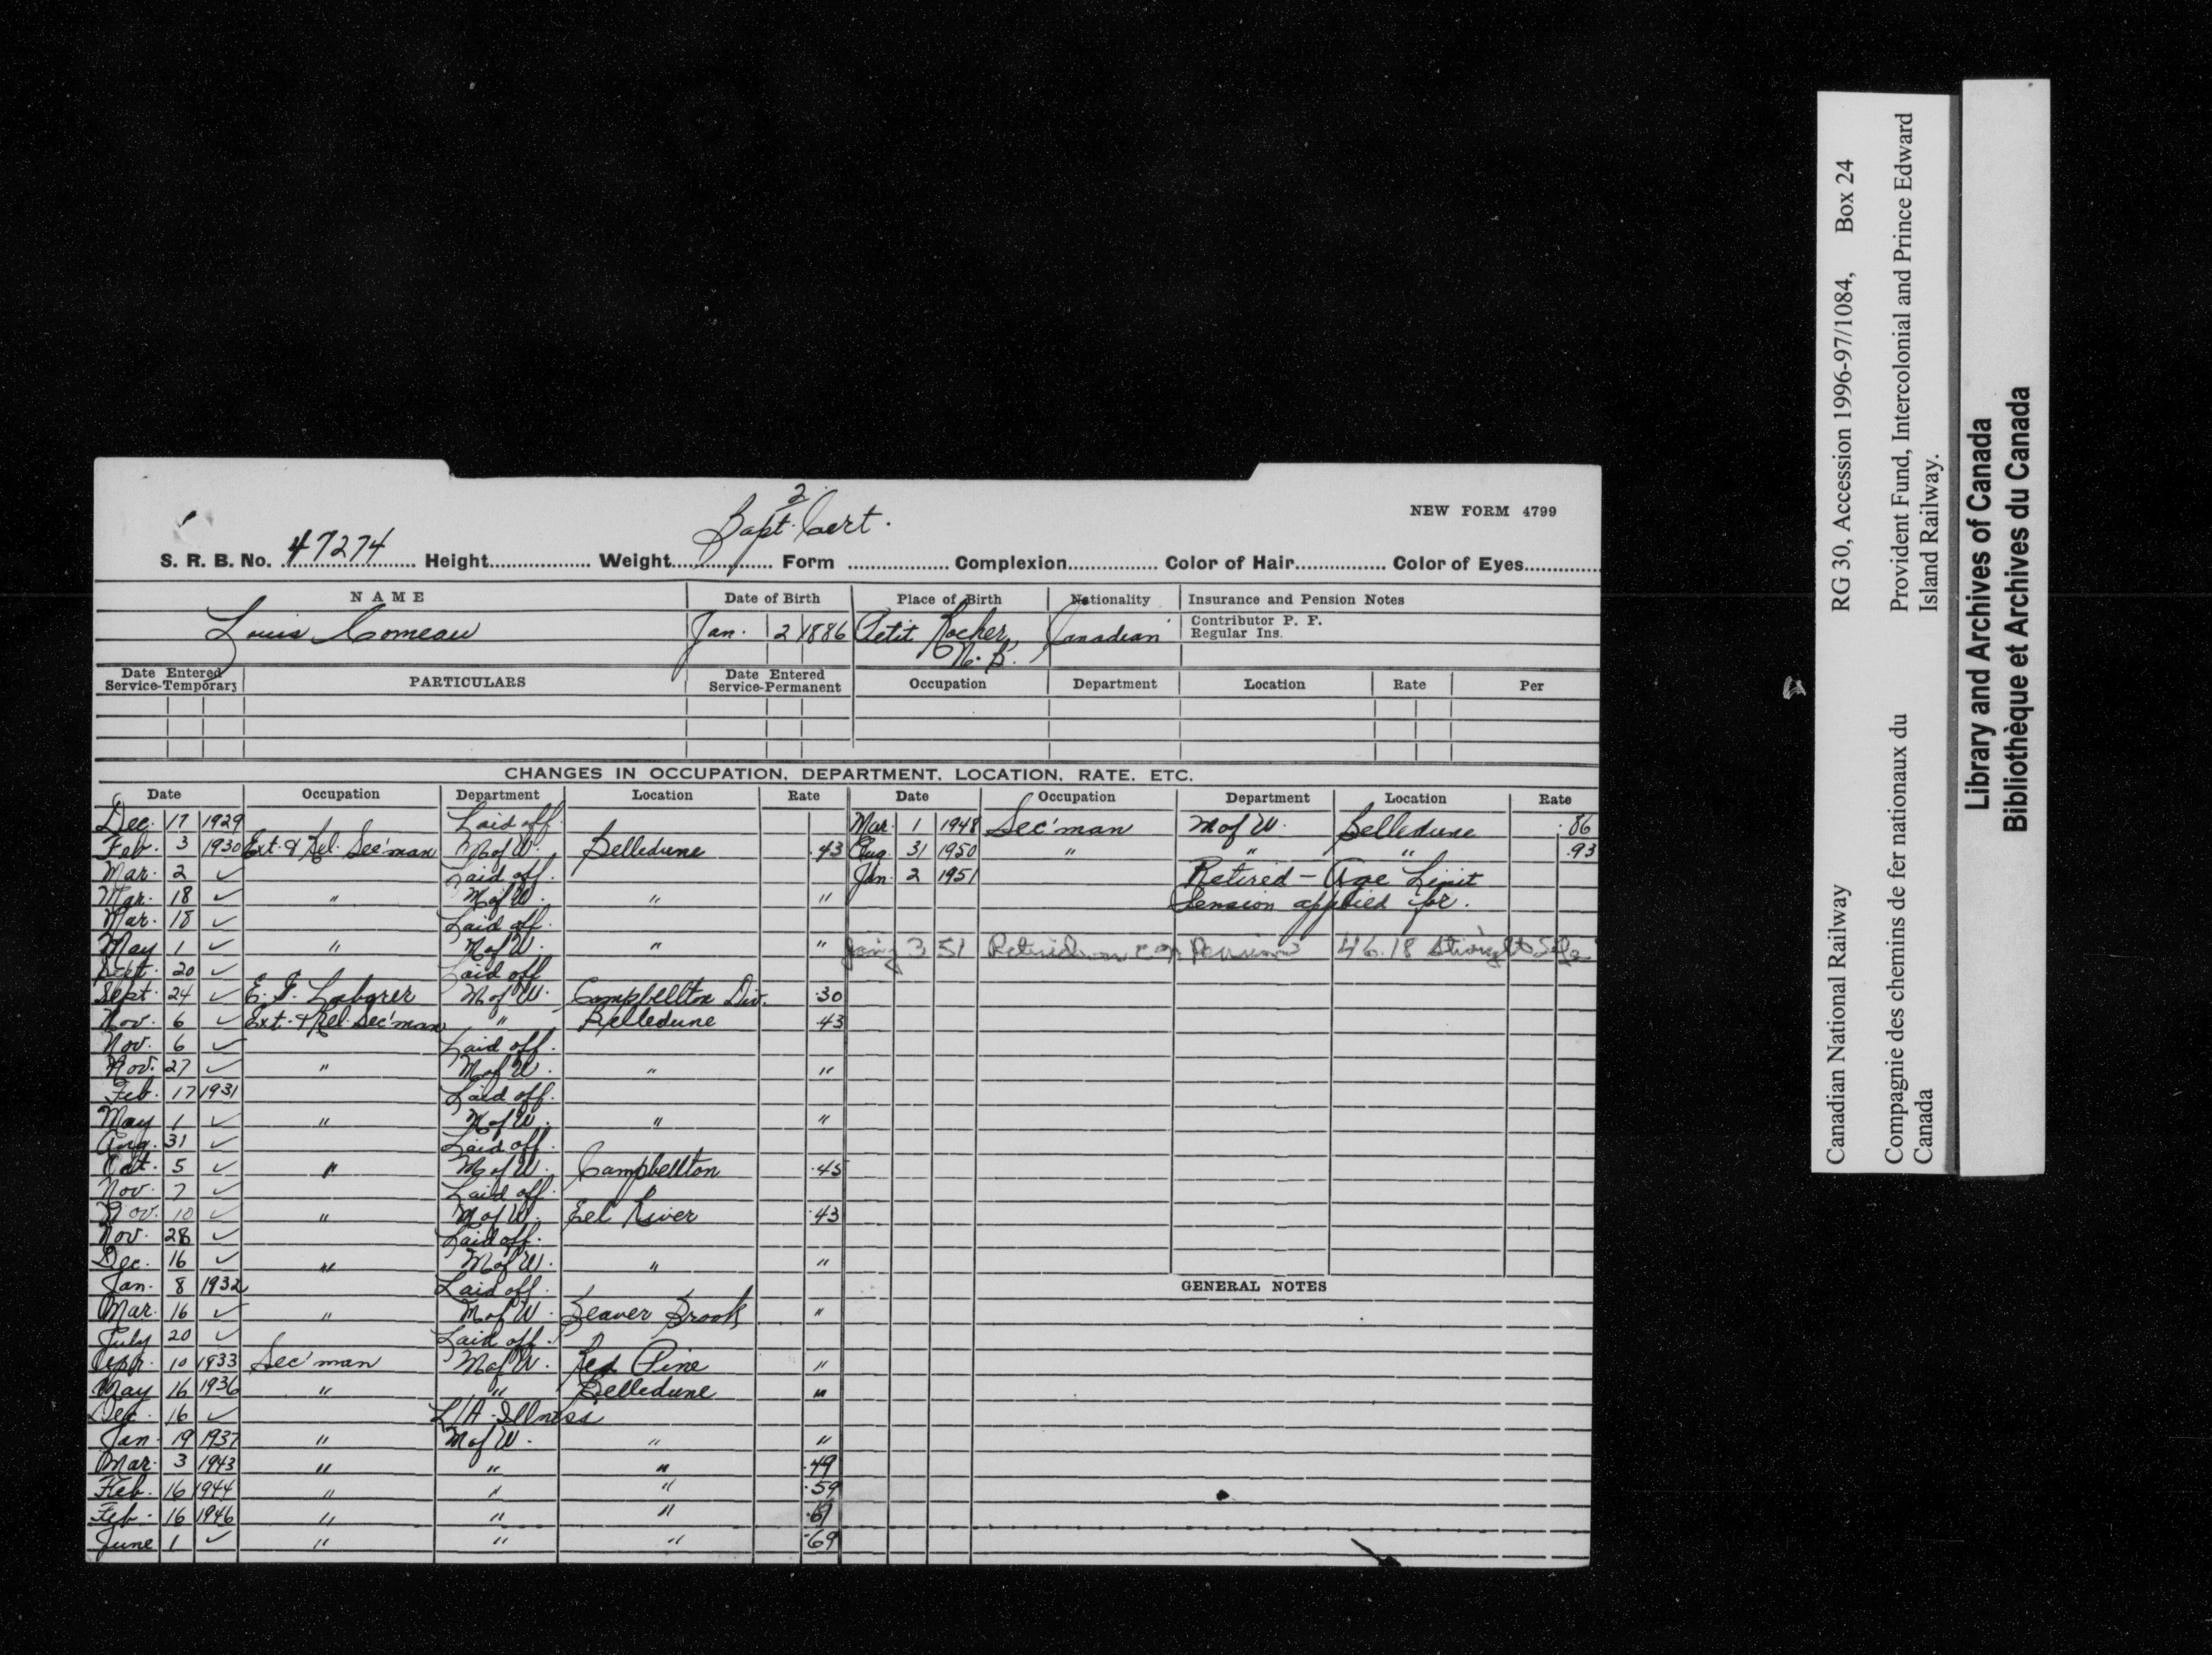 2
Bapt. Cert.
NEW FORM 4799
S. R. B. No. 47274 Height Weight Form Complexion Color of Hair Color of Eyes
NAME Date of Birth Place of Birth Nationality Insurance and Pension Notes
Louis Comeau Jan. 2 1886 Petit Rocher, N. B. Canadian Contributor P. F.
Regular Ins.
Date Entered Service-Temporary PARTICULARS Date Entered Service-Permanent Occupation Department Location Rate Per
CHANGES IN OCCUPATION, DEPARTMENT, LOCATION, RATE, ETC.
Date Occupation Department Location Rate
Dec. 17 1929 Laid off.
Feb. 3 1930 Ext. & Rel. Sec'man M of W. Belledune .43
Mar. 2 ✓ Laid off.
Mar. 18 ✓ " M of W. " "
Mar. 18 ✓ Laid off.
May 1 ✓ " M of W. " "
Sept. 20 ✓ Laid off
Sept. 24 ✓ E. G. Laborer M of W. Campbellton Div. .30
Nov. 6 ✓ Ext. & Rel. Sec'man " Belledune .43
Nov. 6 ✓ Laid off.
Nov. 27 ✓ " M of W. " "
Feb. 17 1931 Laid off.
May 1 ✓ " M of W. " "
Aug. 31 ✓ Laid off.
Oct. 5 ✓ " M of W. Campbellton .45
Nov. 7 ✓ Laid off.
Nov. 10 ✓ " M of W. Eel River .43
Nov. 28 ✓ Laid off.
Dec. 16 ✓ " M of W. " "
Jan. 8 1932 Laid off.
Mar. 16 ✓ " M of W. Beaver Brook "
July 20 ✓ Laid off.
Apr. 10 1933 Sec'man M of W. Red Pine "
May 16 1936 " " Belledune "
Dec. 16 ✓ L/A Illness
Jan. 19 1937 " M of W. " "
Mar. 3 1943 " " " .49
Feb. 16 1944 " " " .59
Feb. 16 1946 " " " .61
June 1 ✓ " " " .69
Date Occupation Department Location Rate
Mar. 1 1948 Sec'man M of W. Belledune .86
Aug. 31 1950 " " " .93
Jan. 2 1951 Retired - Age Limit
Pension applied for.
3 51 Retired on Pension 46.18 Straight Life
GENERAL NOTES
Canadian National Railway RG 30, Accession 1996-97/1084, Box 24
Compagnie des chemins de fer nationaux du Canada
Provident Fund, Intercolonial and Prince Edward Island Railway.
Library and Archives of Canada
Bibliothèque et Archives du Canada